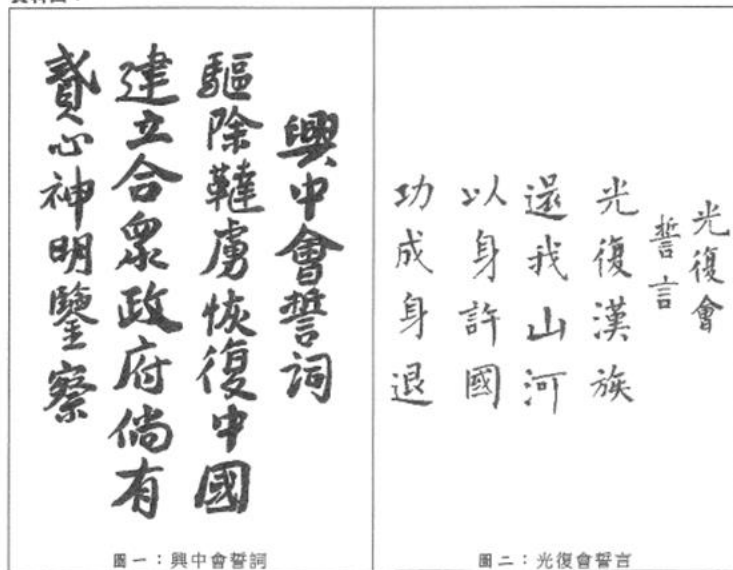 興中會誓詞
驅除韃虜恢復中國
建立合衆政府倘有
貳心神明鑒察
圖一：興中會誓詞
光復會
誓言
光復漢族
還我山河
以身許國
功成身退
圖二：光復會誓言